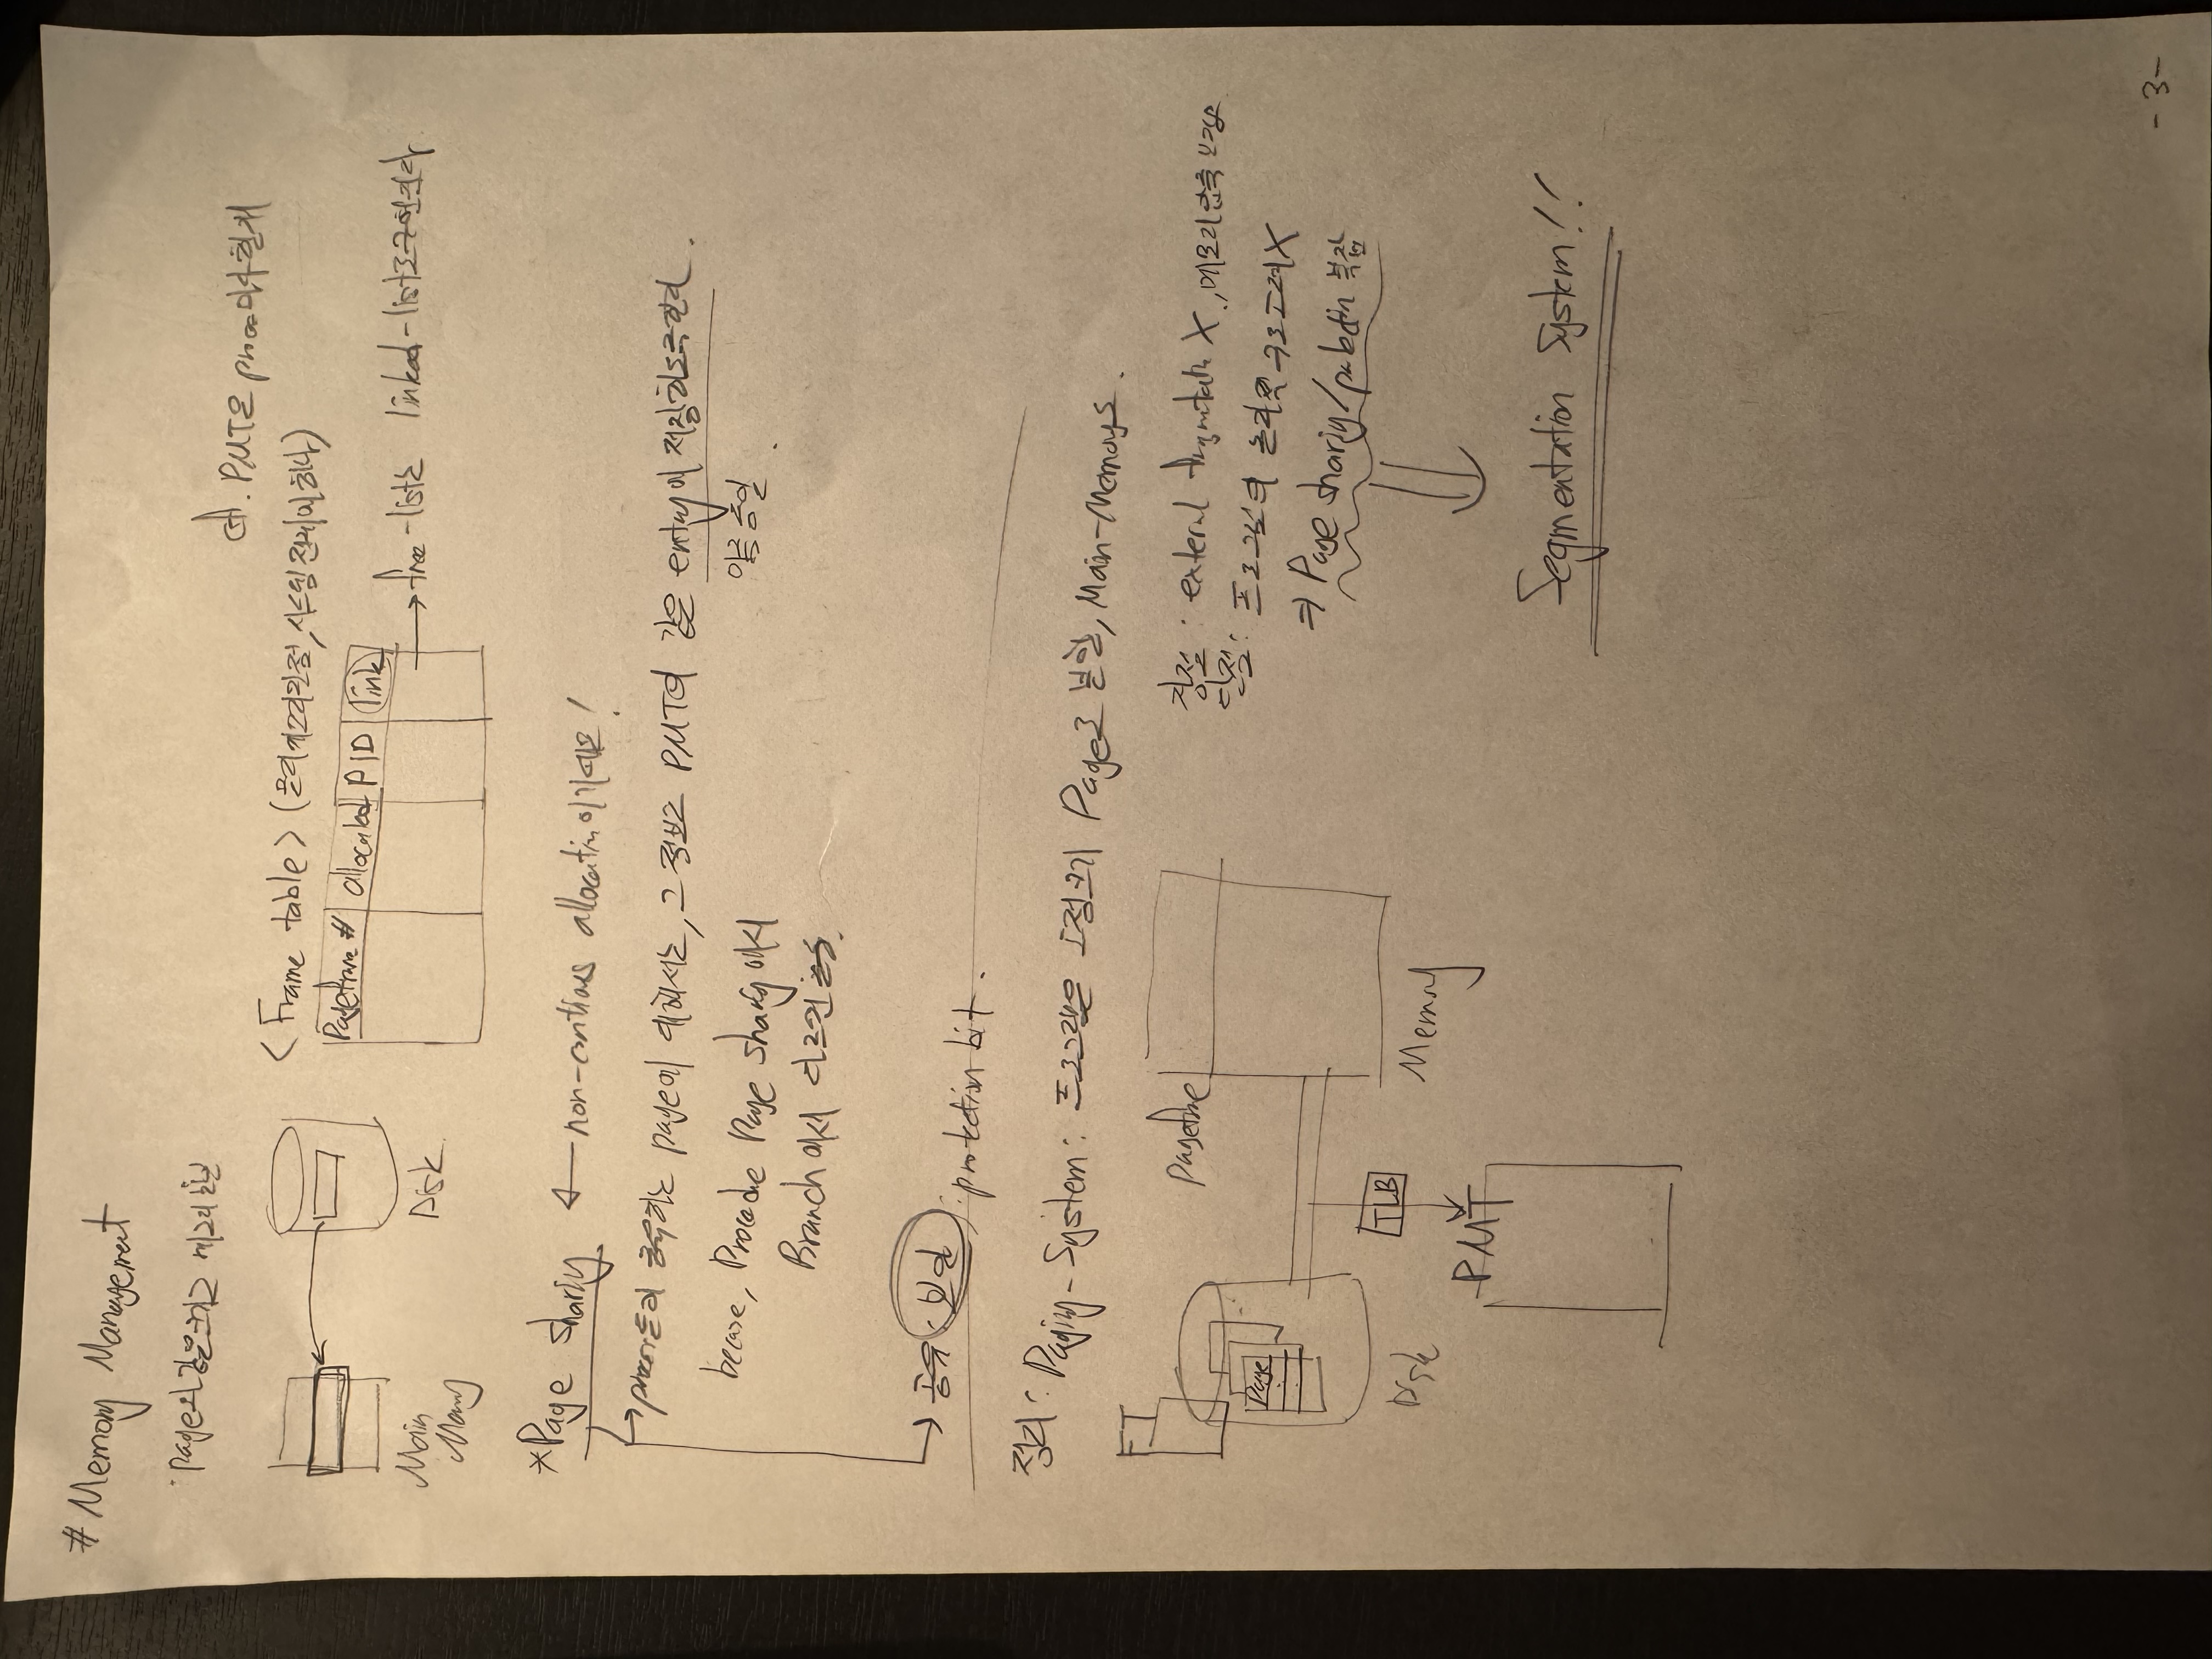 # Memory Management
· page와 같은크기로 메모리 분할
cf. PMT은 process마다 한개
<Frame table> (물리메모리관점, 시스템 전체에 하나)
Pageframe # allocated PID link
→ free-list는 linked-list로구현된다
Main Memory
Disk.
*Page sharing ← non-continous allocation이기때문!
→ process들이 공유하는 page에 대해서는, 그 정보 PMT의 같은 entry에 저장하도록한다.
because, Procedure Page sharing에서
Branch에서 다르면
→ 공유 : 보안 : protection bit.
정리 : Paging-System : 프로그램은 고정크기 Page로 분할, Main-Memory도.
FT
Page
Disk
TLB
PMT
pageframe
Memory
장점 : external fragmentation X ., 메모리압축 불필요
단점 : 프로그램의 논리적 구조 고려X
⇒ Page sharing/protection 복잡
Segmentation System!!
-3-